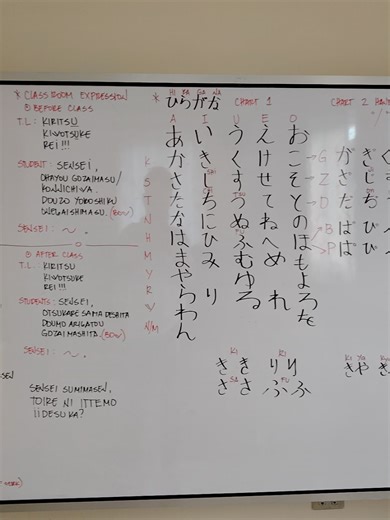 * CLASSROOM EXPRESSION
① BEFORE CLASS
T.L: KIRITSU
KIWOTSUKE
REI !!!
STUDENT: SENSEI,
OHAYOU GOZAIMASU/
KONNICHIWA.
DOUZO YOROSHIKU
ONEGAISHIMASU. (BOW)
SENSEI: ~.
② AFTER CLASS
T.L: KIRITSU
KIWOTSUKE
REI !!!
STUDENTS: SENSEI,
OTSUKARE SAMA DESHITA
DOUMO ARIGATOU
GOZAIMASHITA. (BOW)
SENSEI: ~.
SENSEI SUMIMASEN.
TOIRE NI ITTEMO
iiDESUKA?
HI RA GA NA
* ひらがな CHART 1
A I U E O
あ い う え お
K か き く け こ
S さ し す せ そ
T た ち つ て と
N な に ぬ ね の
H は ひ ふ へ ほ
M ま み む め も
Y や ゆ よ
R ら り る れ ろ
W わ を
N/M ん
KI RI
き き り り
SA FU
さ さ ふ ふ
CHART 2
G が ぎ
Z ざ じ
D だ ぢ
B ば び
P ぱ ぴ
KI YA
き や